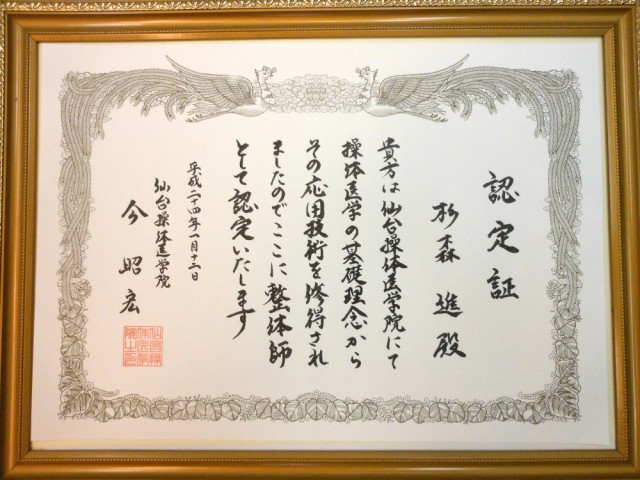 認定証
杉森 進 殿
貴方は仙台操体医学院にて
操体医学の基礎理念から
その応用技術を修得され
ましたのでここに整体師
として認定いたします
平成二十四年一月十二日
仙台操体医学院
今 昭宏